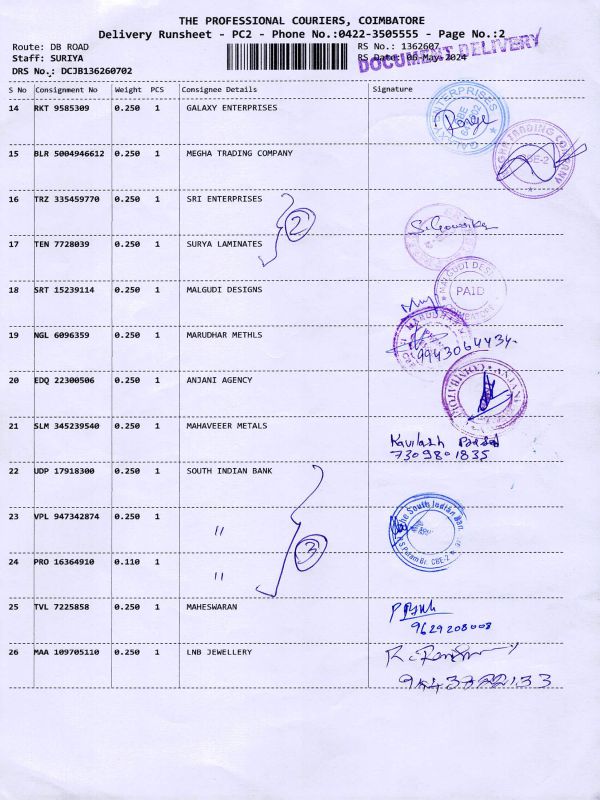 THE PROFESSIONAL COURIERS, COIMBATORE
Delivery Runsheet - PC2 - Phone No.:0422-3505555 - Page No.:2
Route: DB ROAD
RS No.: 1362607
Staff: SURIYA
RS Date: 06-May-2024
DOCUMENT DELIVERY
DRS No.: DCJB136260702
S No Consignment No Weight PCS Consignee Details Signature
14 RKT 9585309 0.250 1 GALAXY ENTERPRISES
15 BLR 5004946612 0.250 1 MEGHA TRADING COMPANY
16 TRZ 335459770 0.250 1 SRI ENTERPRISES
2
17 TEN 7728039 0.250 1 SURYA LAMINATES
18 SRT 15239114 0.250 1 MALGUDI DESIGNS
PAID
19 NGL 6096359 0.250 1 MARUDHAR METHLS
9943064434
20 EDQ 22300506 0.250 1 ANJANI AGENCY
21 SLM 345239540 0.250 1 MAHAVEEER METALS
7309801835
22 UDP 17918300 0.250 1 SOUTH INDIAN BANK
The South Indian Ban
23 VPL 947342874 0.250 1 "
3
24 PRO 16364910 0.110 1 "
25 TVL 7225858 0.250 1 MAHESWARAN
9629208008
26 MAA 109705110 0.250 1 LNB JEWELLERY